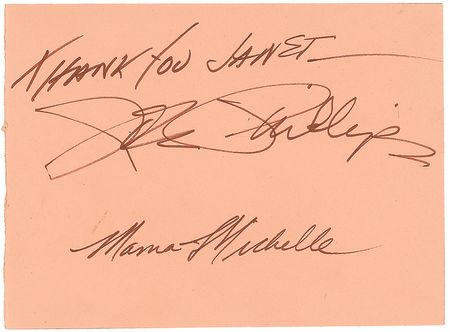 THANK YOU JANET—
John Phillips
Mama Michelle